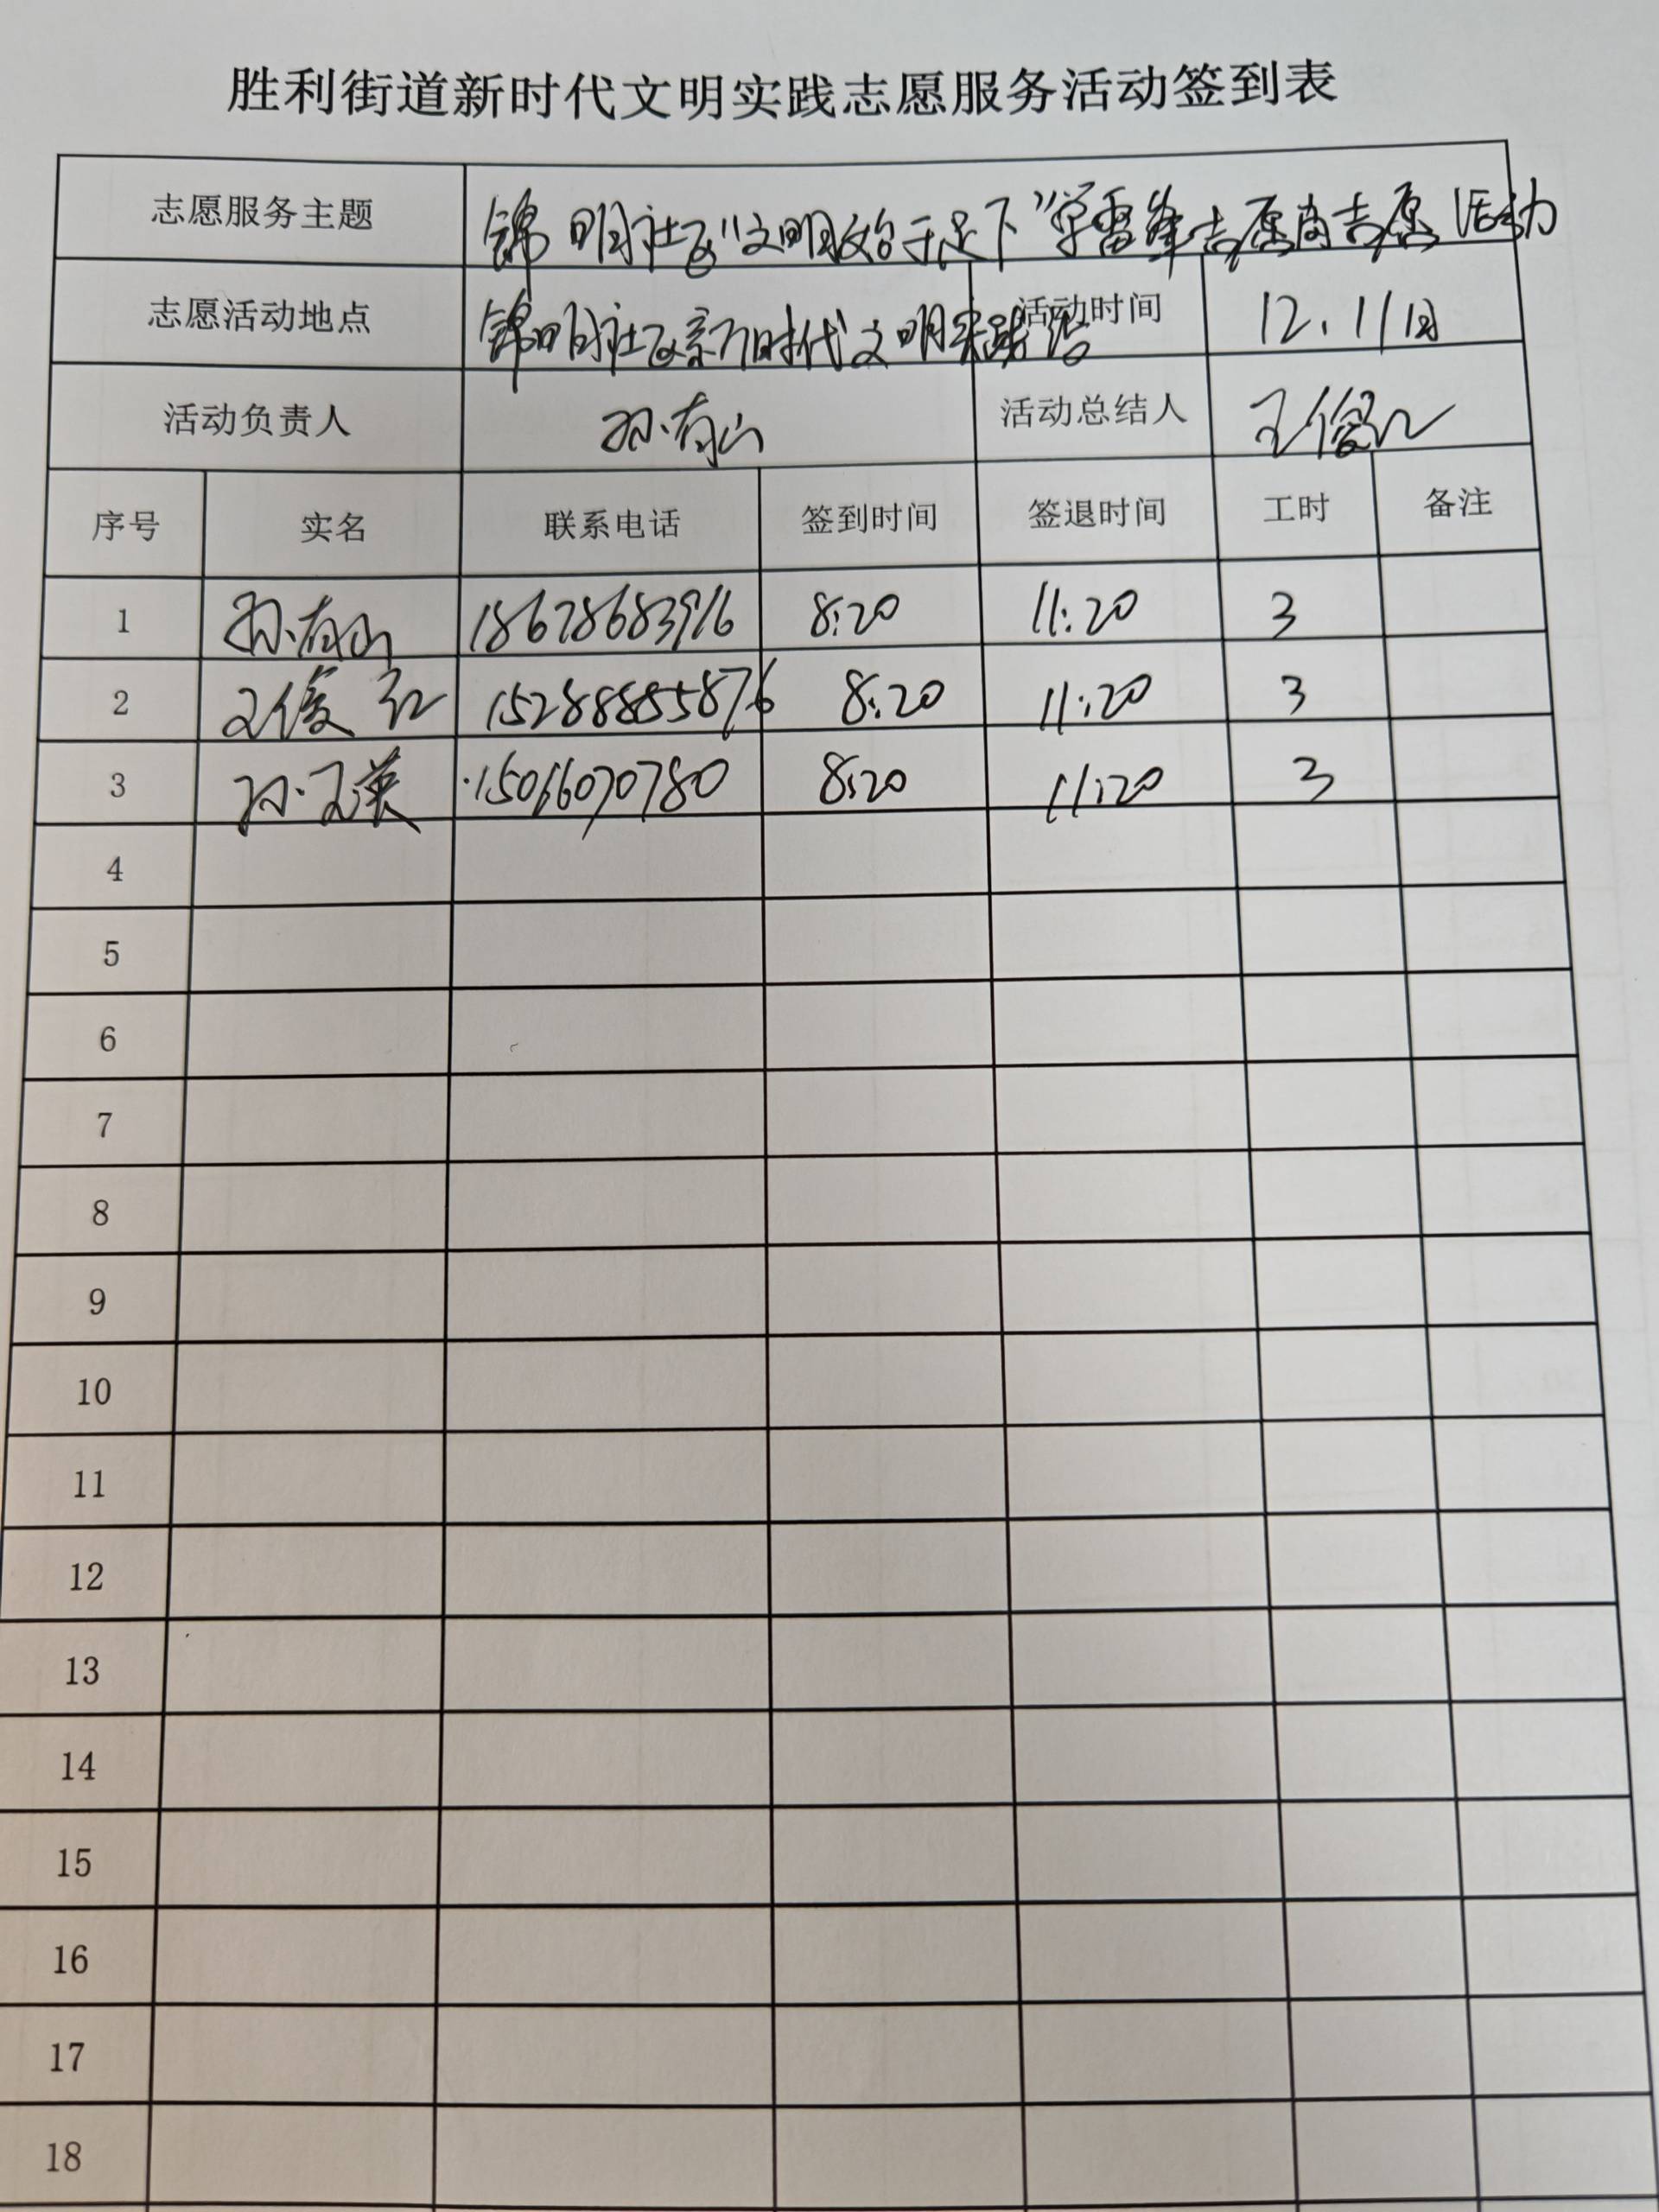 胜利街道新时代文明实践志愿服务活动签到表
志愿服务主题 锦明社区"文明始于足下"学雷锋志愿岗志愿活动
志愿活动地点 锦明社区新时代文明实践站 活动时间 12.11日
活动负责人 孙有山 活动总结人 王俊红
序号 实名 联系电话 签到时间 签退时间 工时 备注
1 孙有山 18678683916 8:20 11:20 3
2 王俊红 15288885876 8:20 11:20 3
3 孙玉英 15066070780 8:20 11:20 3
4
5
6
7
8
9
10
11
12
13
14
15
16
17
18